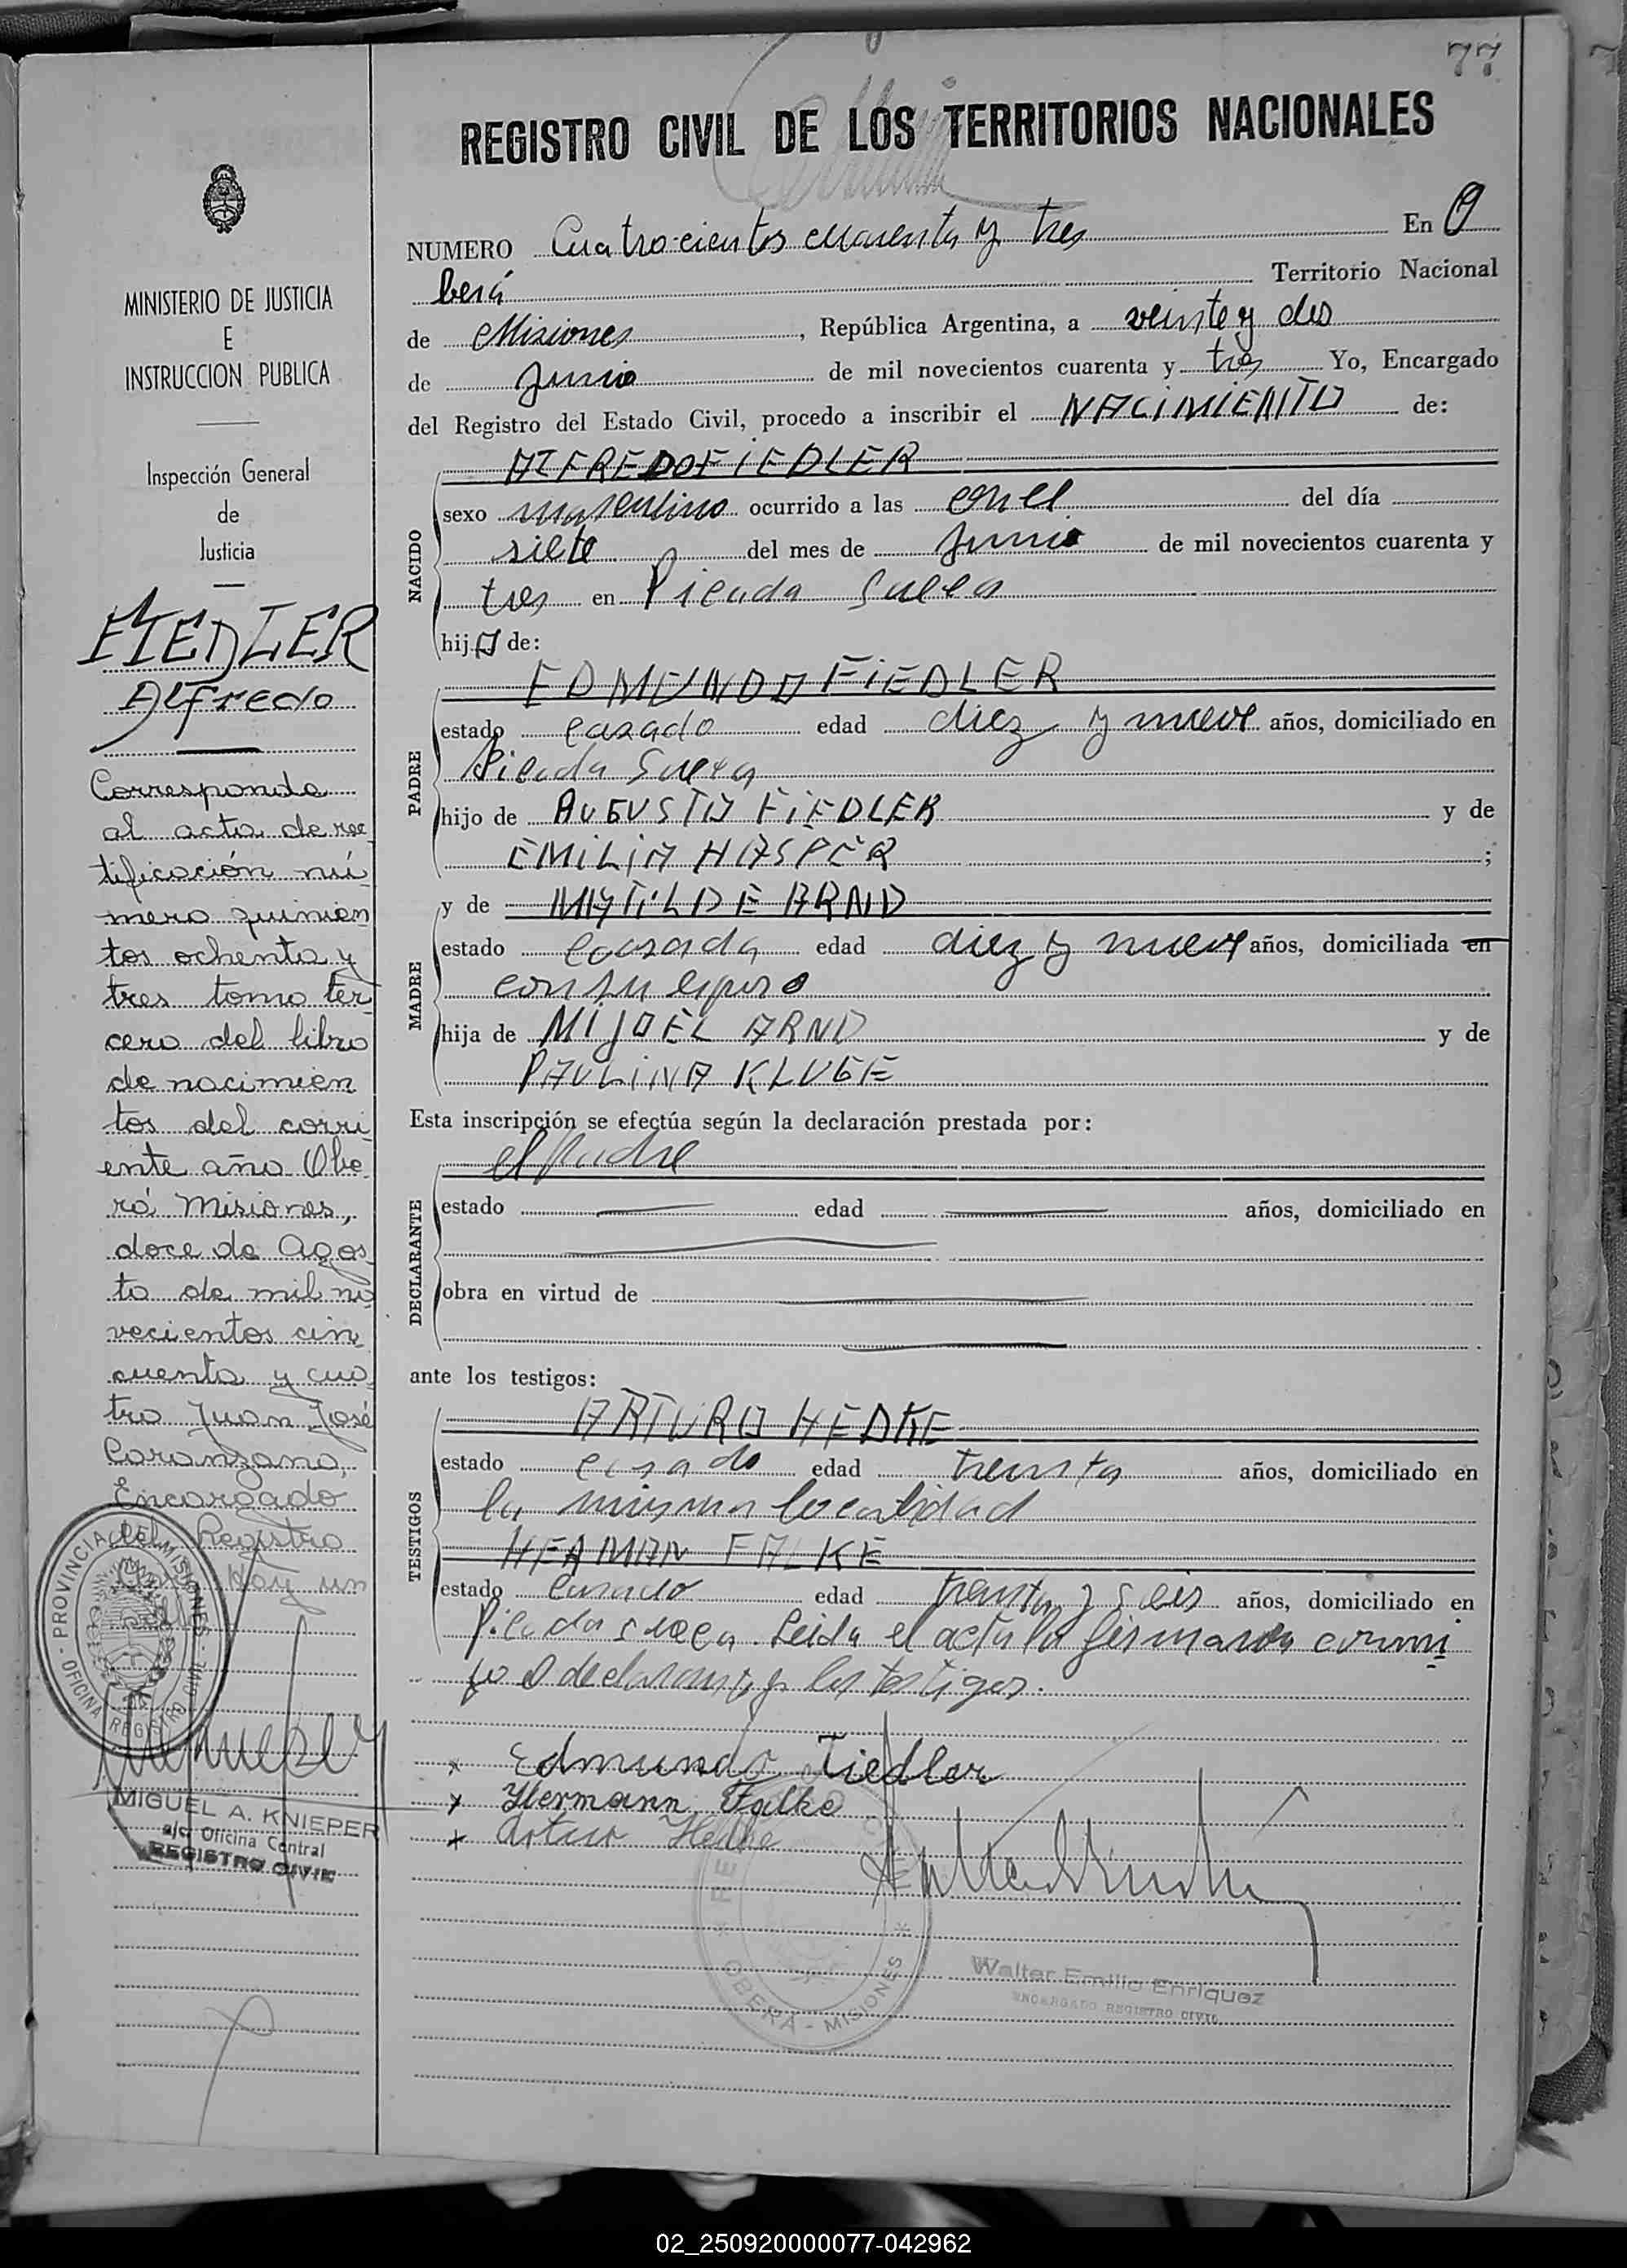 77
REGISTRO CIVIL DE LOS TERRITORIOS NACIONALES
NUMERO Cuatrocientos cuarenta y tres En O
berá Territorio Nacional
de Misiones, República Argentina, a veinte y dos
de Junio de mil novecientos cuarenta y tres Yo, Encargado
del Registro del Estado Civil, procedo a inscribir el NACIMIENTO de:
NACIDO
ALFREDO FIEDLER
sexo masculino ocurrido a las en el del día
siete del mes de Junio de mil novecientos cuarenta y
tres en Picada Sueca
hijo de:
PADRE
EDMUNDO FIEDLER
estado casado edad diez y nueve años, domiciliado en
Picada Sueca
hijo de AUGUSTO FIEDLER y de
EMILIA HASPER ;
MADRE
y de MATILDE ARND
estado casada edad diez y nueve años, domiciliada en
con su esposo
hija de MIJOEL ARND y de
PAULINA KLUGE
Esta inscripción se efectúa según la declaración prestada por:
DECLARANTE
el padre
estado edad años, domiciliado en
obra en virtud de
ante los testigos:
TESTIGOS
ARTURO HEDKE
estado casado edad treinta años, domiciliado en
la misma localidad
HERMAN FALKE
estado casado edad treinta y seis años, domiciliado en
Picada sueca. Leida el acta la firmaron conmi
go el declarante y los testigos.
x Edmundo Fiedler
x Hermann Falke
x Arturo Hedke
REGISTRO
OBERA - MISIONES
Walter Emilio Enriquez
ENCARGADO REGISTRO CIVIL
MINISTERIO DE JUSTICIA
E
INSTRUCCION PUBLICA
Inspección General
de
Justicia
FIEDLER
Alfredo
Corresponde
al acta de rec
tificación nú
mero quinien
tos ochenta y
tres tomo ter
cero del libro
de nacimien
tos del corri
ente año Obe
rá Misiones,
doce de Agos
to de mil no
vecientos cin
cuenta y cua
tro Juan José
Coranzano,
Encargado
del Registro
Hay un
PROVINCIA DE MISIONES
OFICINA REGISTRO CIVIL
MIGUEL A. KNIEPER
a/c Oficina Central
REGISTRO CIVIL
02_250920000077-042962